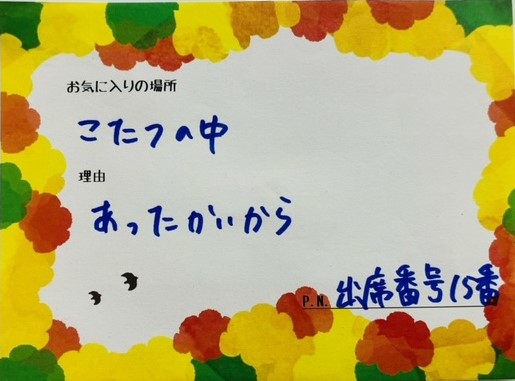 お気に入りの場所
こたつの中
理由
あったかいから
P.N. 出席番号15番